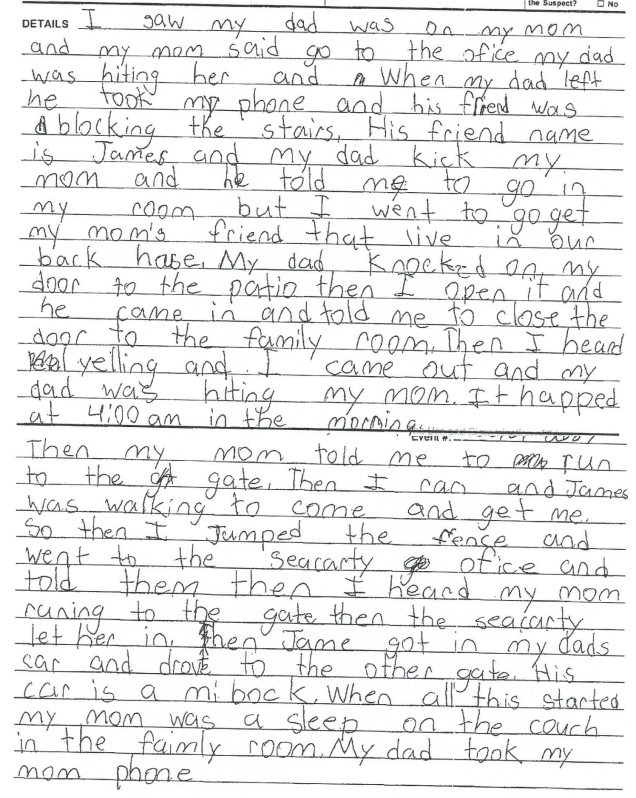 the Suspect? □ No
DETAILS I saw my dad was on my mom
and my mom said go to the ofice my dad
was hiting her and When my dad left
he took my phone and his friend was
blocking the stairs, His friend name
is James and my dad kick my
mom and he told me to go in
my room but I went to go get
my mom's friend that live in our
back hase. My dad knocked on my
door to the patio then I open it and
he came in and told me to close the
door to the family room. Then I heard
yelling and I came out and my
dad was hiting my mom. It happed
at 4:00 am in the morning.
Event #:
Then my mom told me to run
to the gate. Then I ran and James
was walking to come and get me.
So then I Jumped the fence and
went to the seacarty ofice and
told them then I heard my mom
runing to the gate then the seacarty
let her in. Then Jame got in my dads
car and drove to the other gate. His
car is a mi bock. When all this started
my mom was a sleep on the couch
in the faimly room. My dad took my
mom phone